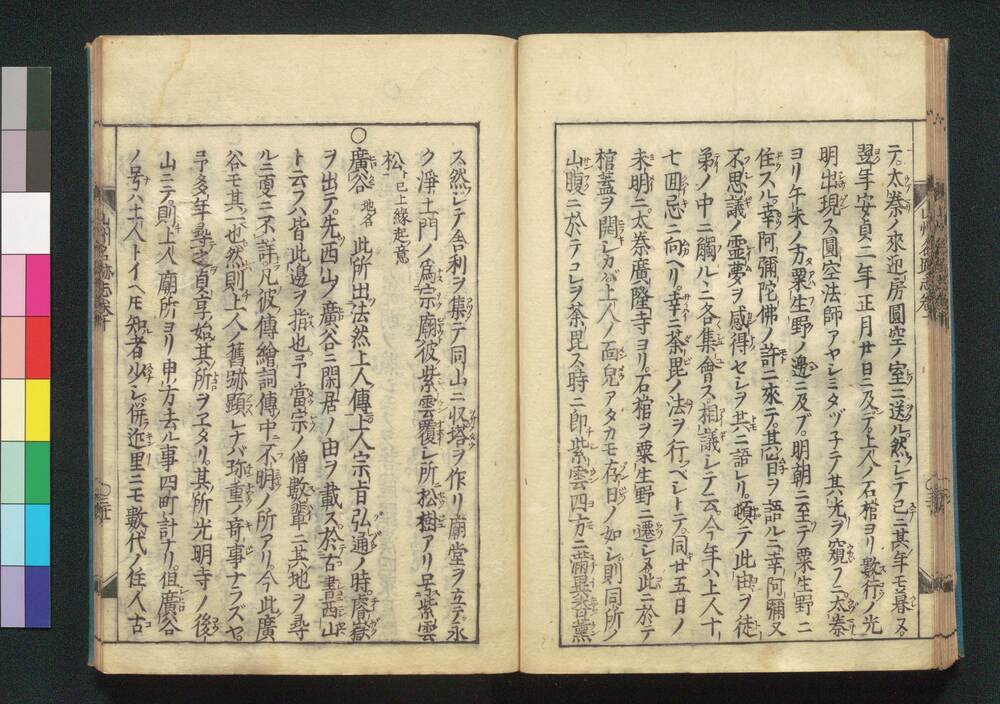 テ太秦ノ來迎房圓空ノ室ニ送ル然シテ已ニ其年モ暮ヌ
翌年安貞二年正月廿日ニ及テ上人ノ石棺ヨリ數行ノ光
明出現ス圓空法師アヤシミタヅ子テ其光ヲ窺フニ太秦
ヨリ午未ノ方粟生野ノ邊ニ及ブ明朝ニ至テ粟生野ニ
住スル幸阿彌陀佛ノ許ニ來テ其旨ヲ語ルニ幸阿彌又
不思議ノ霊夢ヲ感得セシヲ共ニ語レリ頓テ此由ヲ徒
弟ノ中ニ觸ルニ各集會ス相議シテ云今年ハ上人十
七囘忌ニ向ヘリ幸ニ荼毘ノ法ヲ行ベシトテ同廿五日ノ
未明ニ太秦廣隆寺ヨリ石棺ヲ粟生野ニ遷シヌ此ニ於テ
棺蓋ヲ開レカバ上人ノ面皃アタカモ存日ノ如シ則同所ノ
山腹ニ於テコレヲ荼毘ス時ニ即紫雲四方ニ滿異香薫
ス然シテ舎利ヲ集テ同山ニ収塔ヲ作リ廟堂ヲ立テ永
ク淨土門ノ爲宗廟彼紫雲覆シ所松樹アリ号紫雲
松ト已上縁起ノ意
○廣谷 地名 此所出法然上人傳上人宗旨弘通ノ時睿嶽
ヲ出テ先西山ノ廣谷ニ閑居ノ由ヲ載ス於古書西山
ト云フハ皆此邊ヲ指也予當宗ノ僧數輩ニ其地ヲ尋
ルニ更ニ不詳凡彼傳繪詞傳中ニ不明ノ所アリ今此廣
谷モ其一也然則上人ノ舊跡顕レナバ珎重ノ奇事ナラズヤ
予多年尋之貞享ノ始其所ヲエタリ其所光明寺ノ後
山ニテ則上人廟所ヨリ申ノ方去ル事四町計ナリ但廣谷
ノ号ハ土人トイヘ𪜈知者少シ併近里ニモ數代ノ住人古